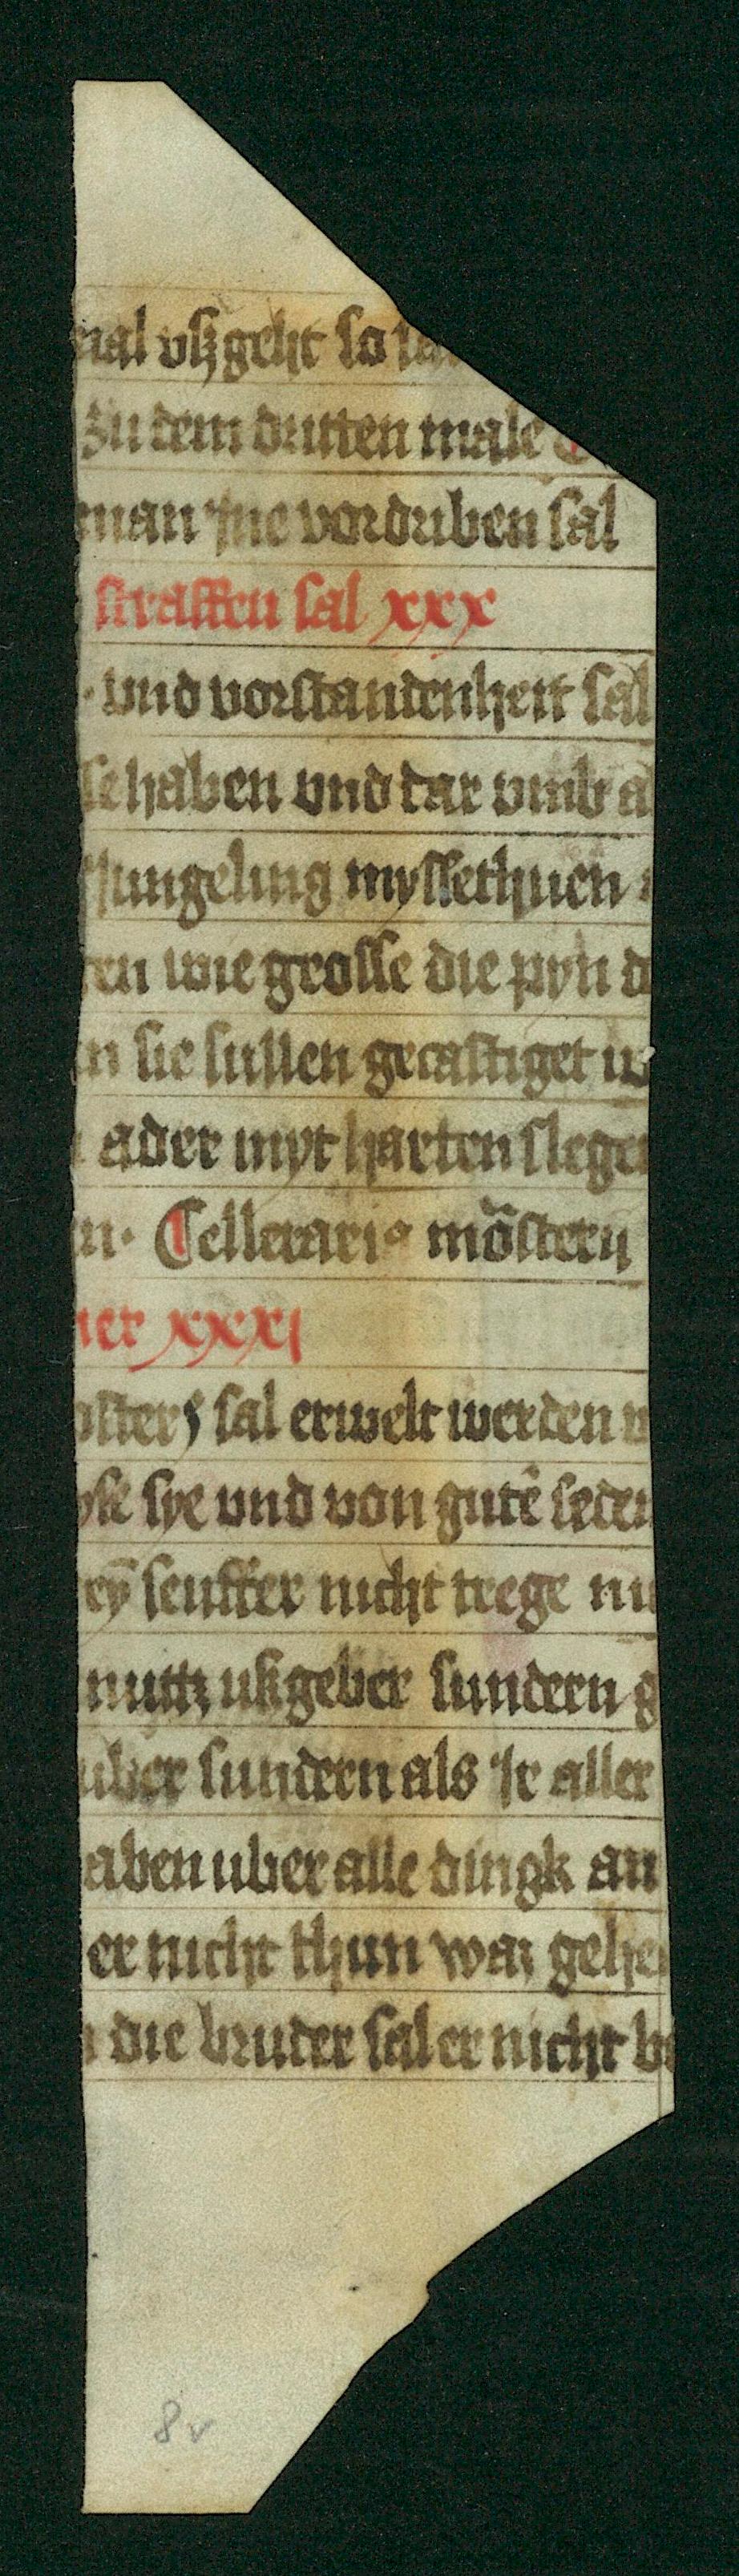 mal vßgeht so
zu dem dritten male
man yne vordriben sal
straffen sal xxx
und vorstandenheit sal
se haben vnd dar vmb a
Jungeling myssethuen
en wie grosse die pyn d
n sie sullen gecastiget w
ader myt harten slegen
n. Cellerariꝰ mōsterij
ner xxxi
osters sal erwelt werden v
yse sye vnd von gutē seden
eyn seuffer nicht trege nu
nuttz ußgeber sundern g
uber sundern als yr aller
aben uber alle dingk an
er nicht thun waz gehe
die bruder sal er nicht be
8v